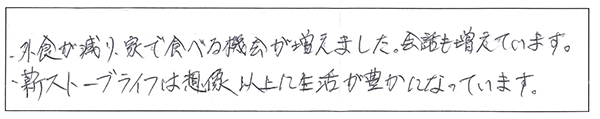 ・外食が減り、家で食べる機会が増えました。会話も増えています。
・薪ストーブライフは想像以上に生活が豊かになっています。